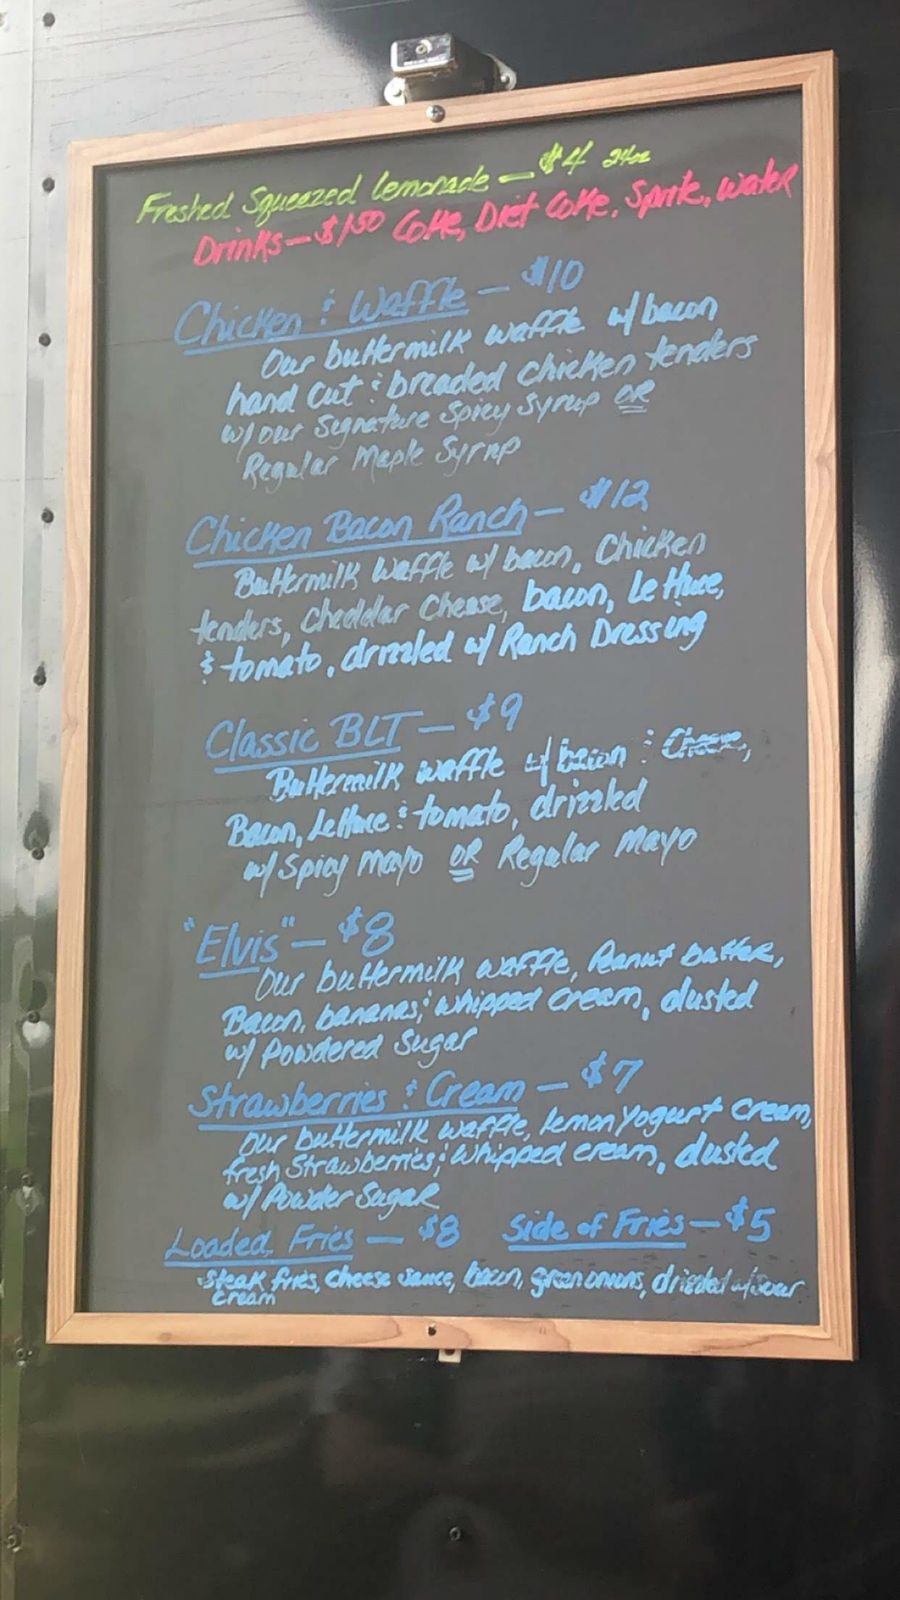 Freshed Squeezed Lemonade — $4 24oz
Drinks — $1.50 Coke, Diet Coke, Sprite, water
Chicken & Waffle — $10
Our buttermilk waffle w/ bacon
hand cut & breaded chicken tenders
w/ our Signature Spicy Syrup OR
Regular Maple Syrup
Chicken Bacon Ranch — $12
Buttermilk Waffle w/ bacon, Chicken
tenders, cheddar cheese, bacon, Lettuce,
& tomato, drizzled w/ Ranch Dressing
Classic BLT — $9
Buttermilk waffle w/ bacon & Cheese,
Bacon, Lettuce & tomato, drizzled
w/ Spicy mayo OR Regular Mayo
"Elvis" — $8
Our buttermilk waffle, Peanut butter,
Bacon, bananas, & whipped cream, dusted
w/ Powdered Sugar
Strawberries & Cream — $7
Our buttermilk waffle, lemon Yogurt cream,
fresh Strawberries, & whipped cream, dusted
w/ Powder Sugar
Loaded Fries — $8 Side of Fries — $5
Steak fries, cheese sauce, bacon, green onions, drizzled w/ sour
cream